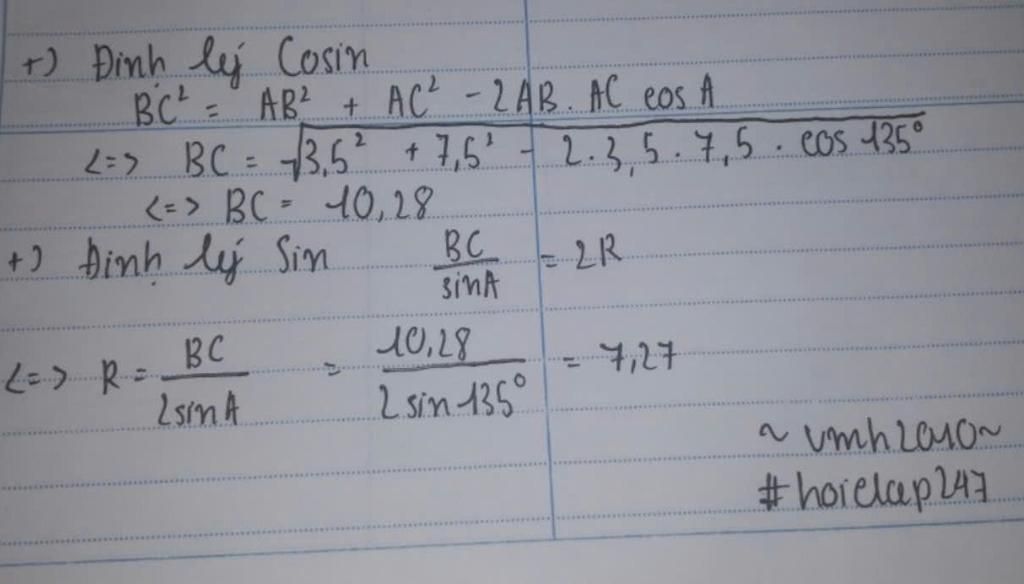 +) Định lý Cosin
BC² = AB² + AC² - 2AB. AC cos A
<=> BC = √3,5² + 7,5² - 2.3,5.7,5. cos 135°
<=> BC = 10,28
+) Định lý Sin BC/sinA = 2R
<=> R = BC/2sinA = 10,28/2sin135° = 7,27
~ vmh2010~
#hoidap247